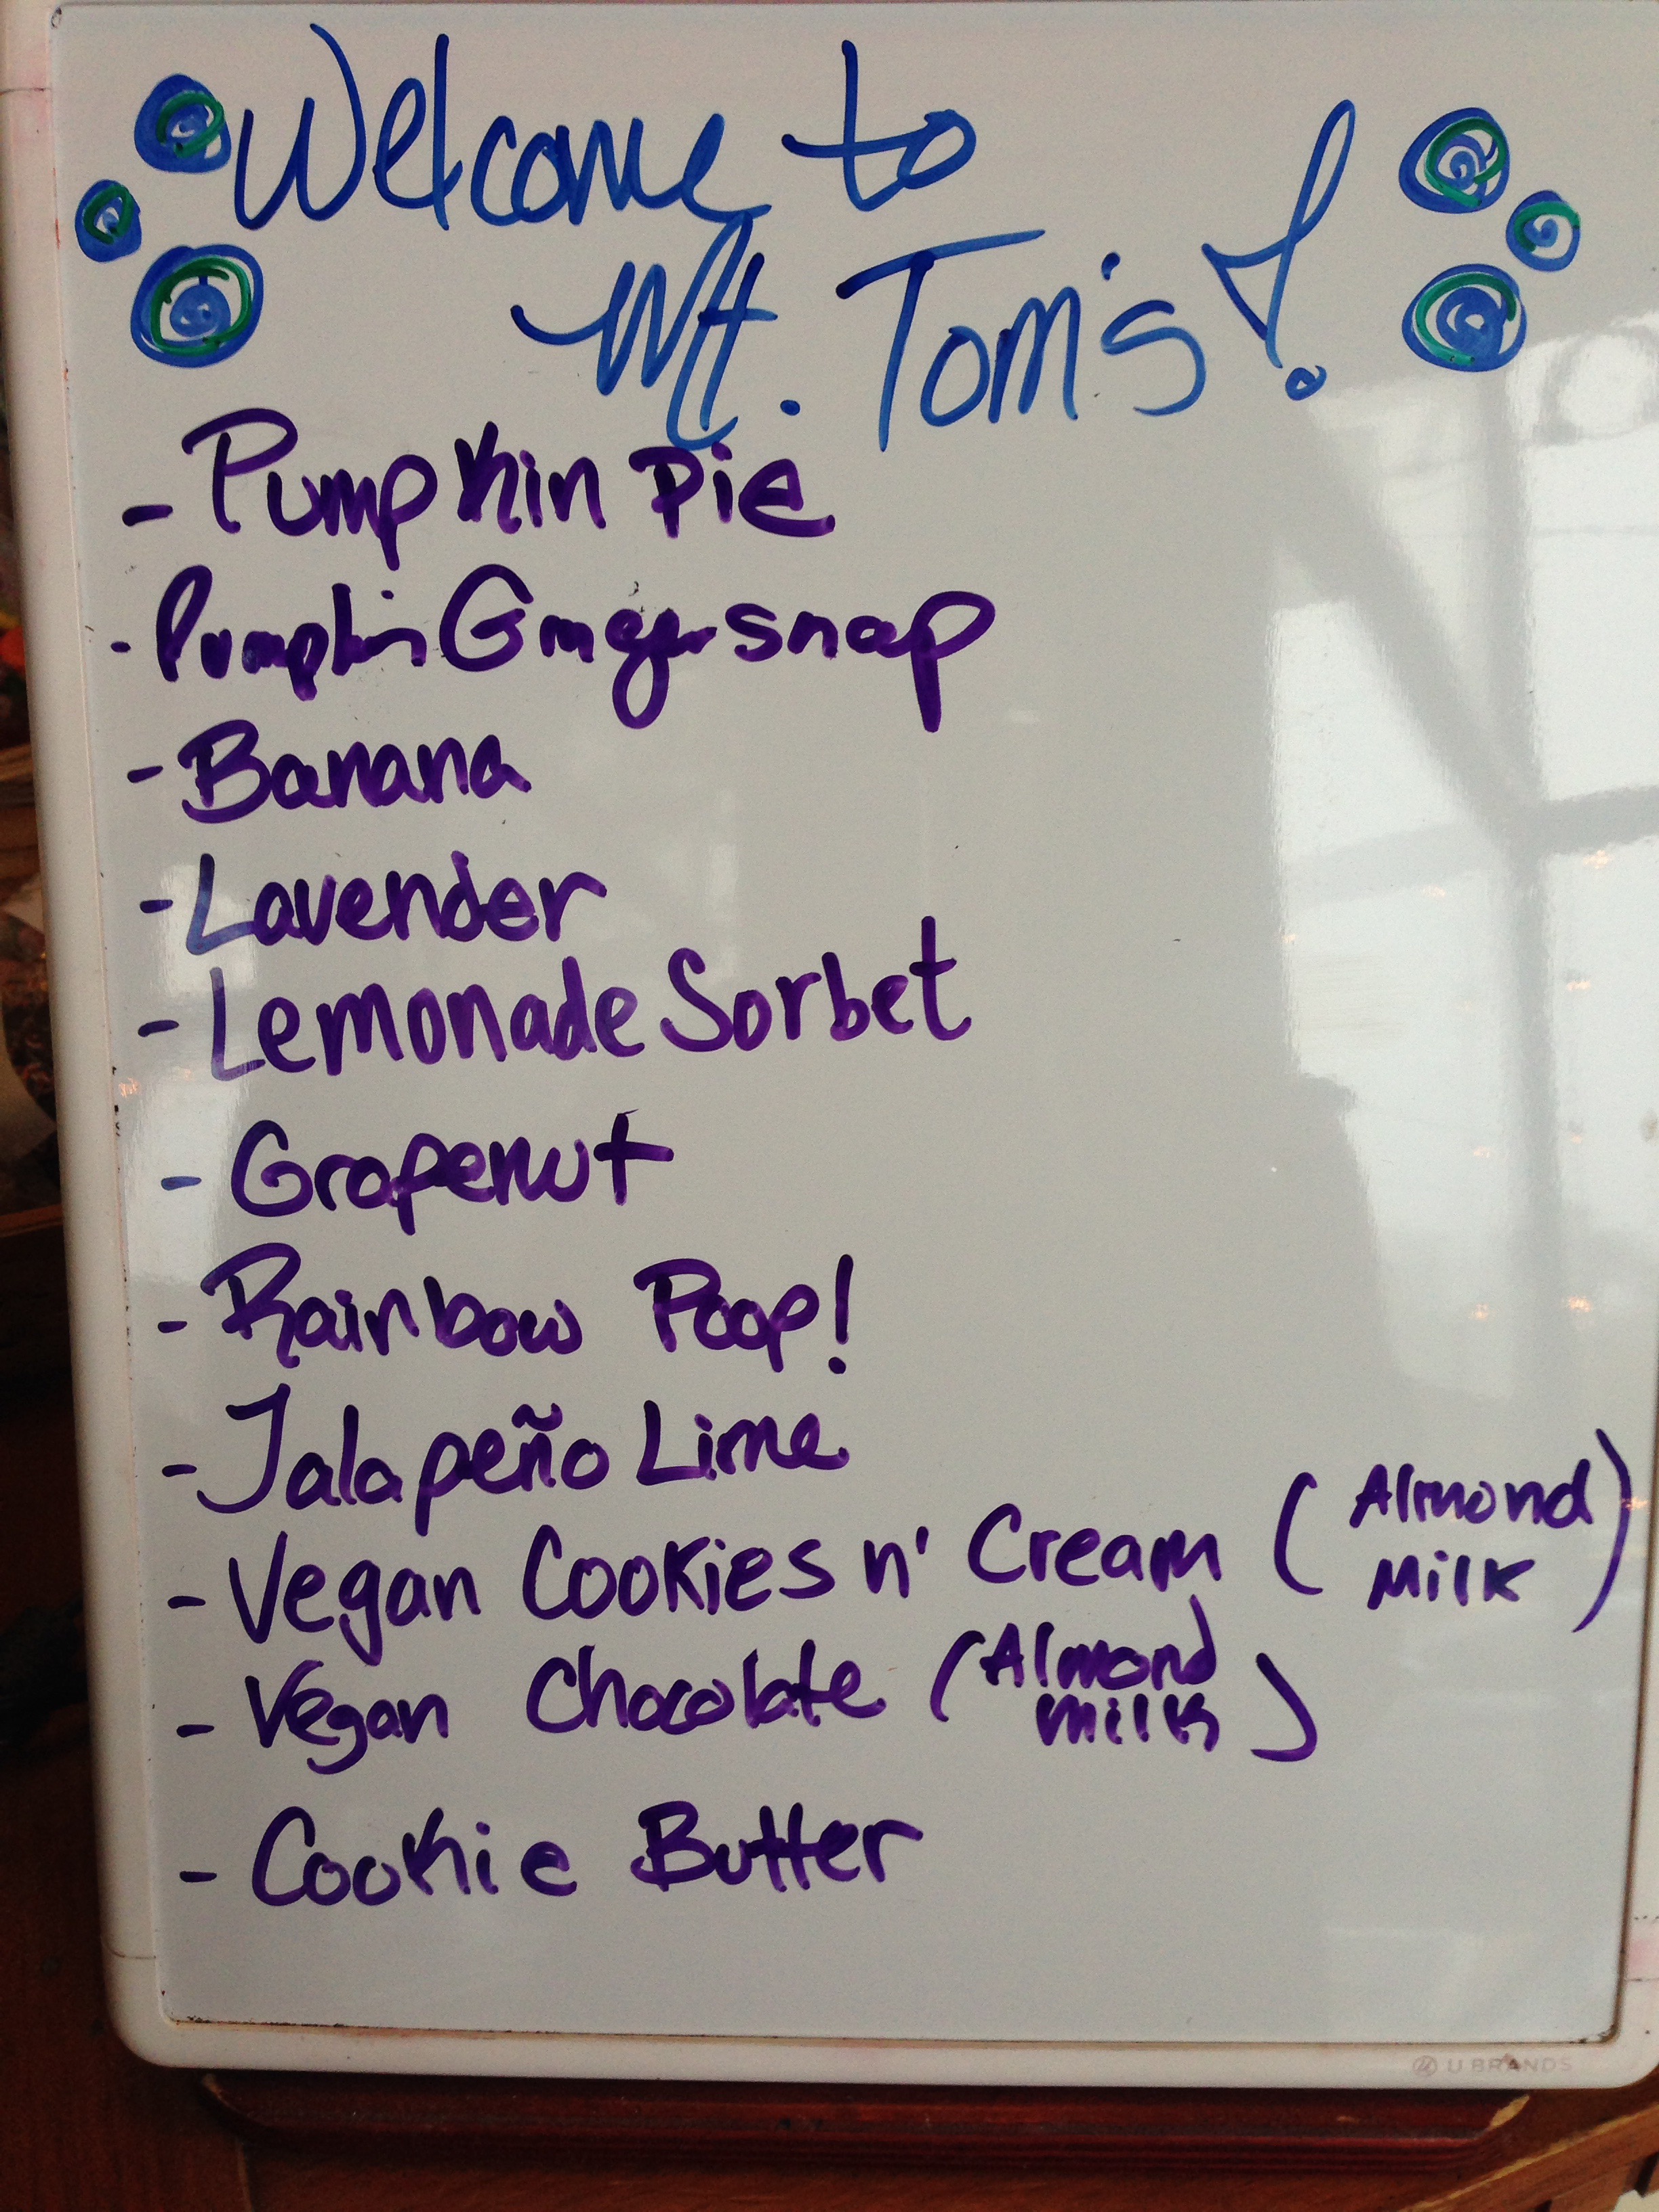 Welcome to
Mt. Tom's!
- Pumpkin Pie
- Pumpkin Gingersnap
- Banana
- Lavender
- Lemonade Sorbet
- Grapenut
- Rainbow Poop!
- Jalapeño Lime
- Vegan Cookies n' Cream (Almond Milk)
- Vegan Chocolate (Almond Milk)
- Cookie Butter
U BRANDS